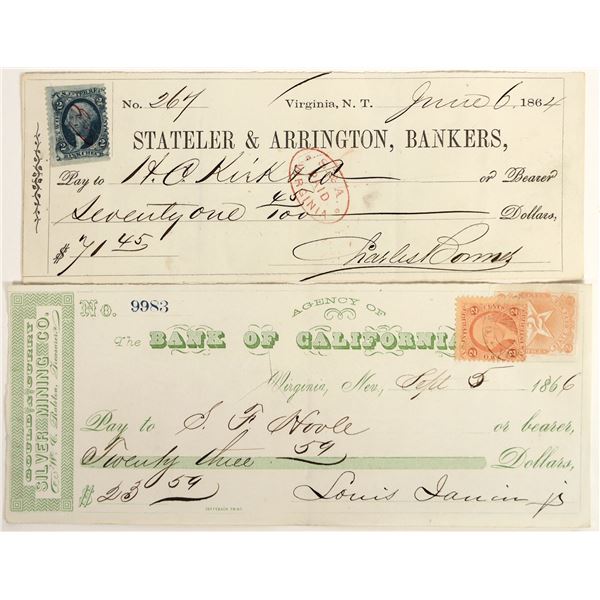 No. 267 Virginia, N. T. June 6, 1864
STATELER & ARRINGTON, BANKERS,
Pay to H. C. Kirk & Co or Bearer
Seventy one 45/100 Dollars,
$71 45
2 2
BANK CHECK
PAID
VIRGINIA
No. 9983
AGENCY OF
The BANK OF CALIFORNIA
Virginia, Nev, Sept 5 1866
Pay to S. F. Hoole or bearer,
Twenty three 59 Dollars,
$ 23 59 Louis Janin jr
GOULD & CURRY
SILVER MINING CO.
2 2